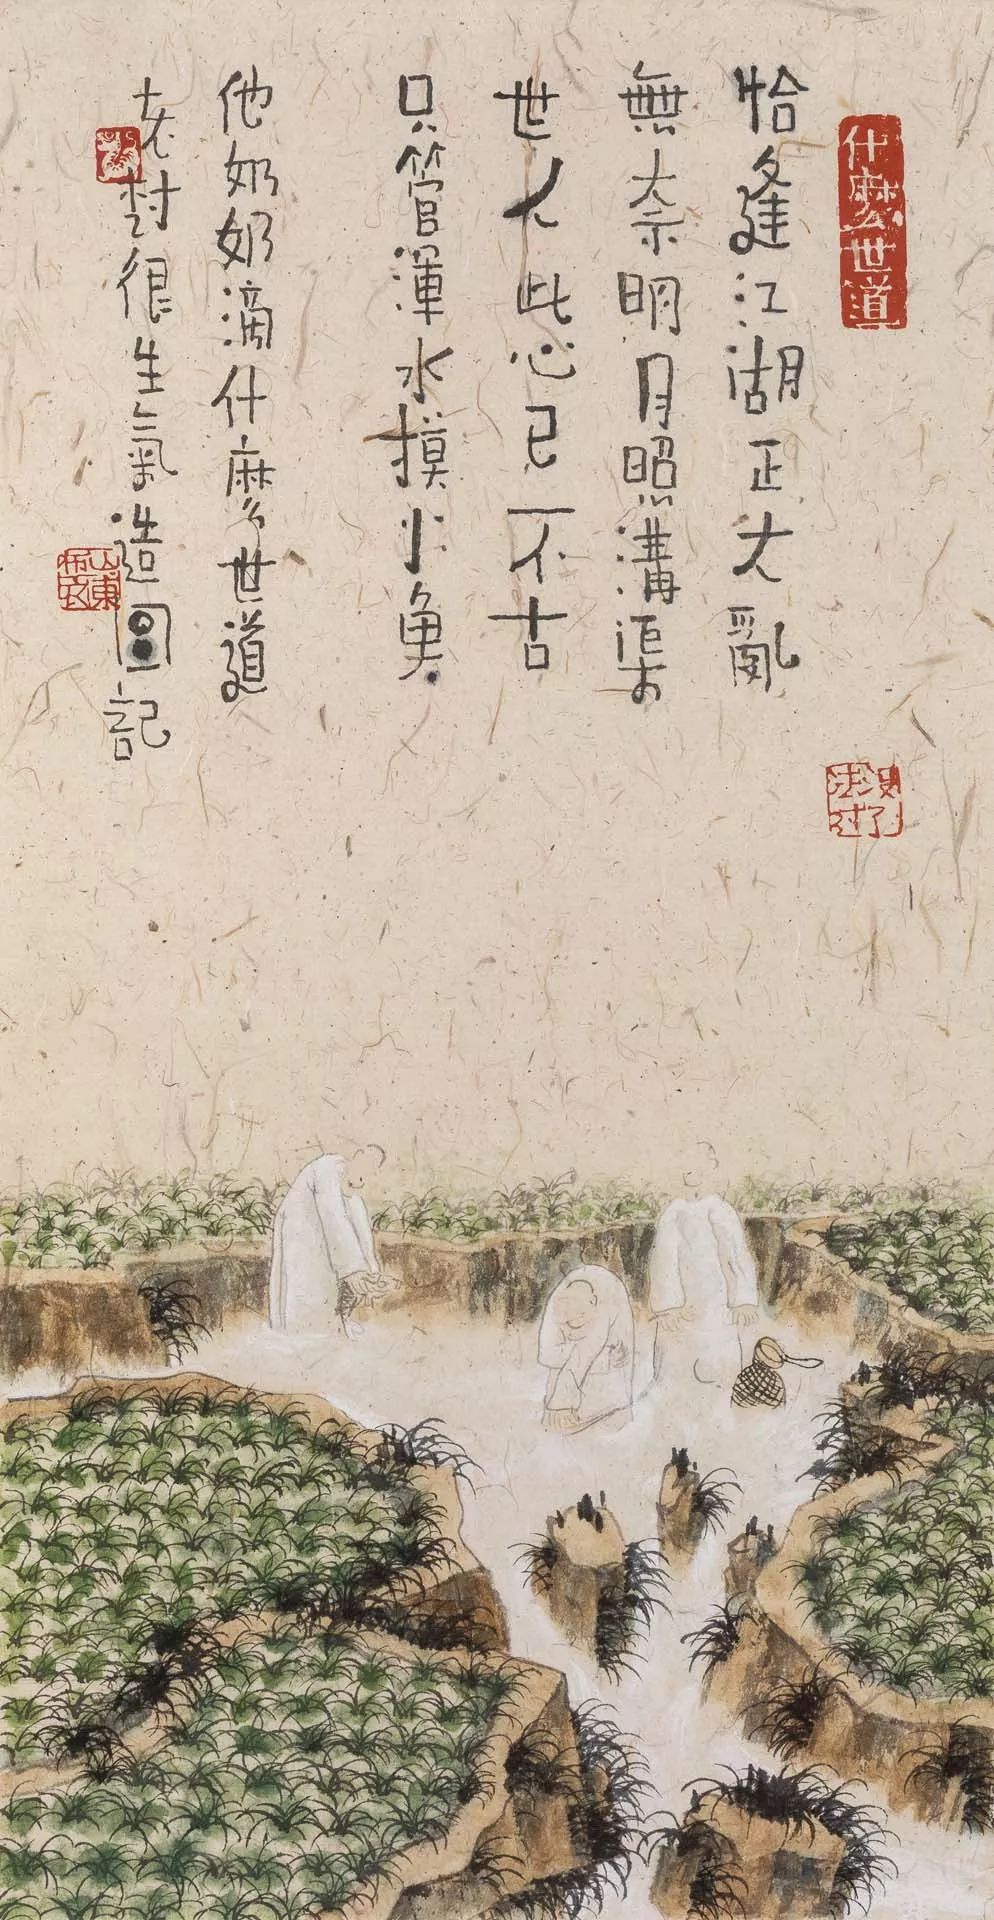 什麽世道
恰逢江湖正大亂
無奈明月照溝渠
世人此心已不古
只管渾水摸小魚
他奶奶滴什麽世道
老村很生氣造圖記
山東